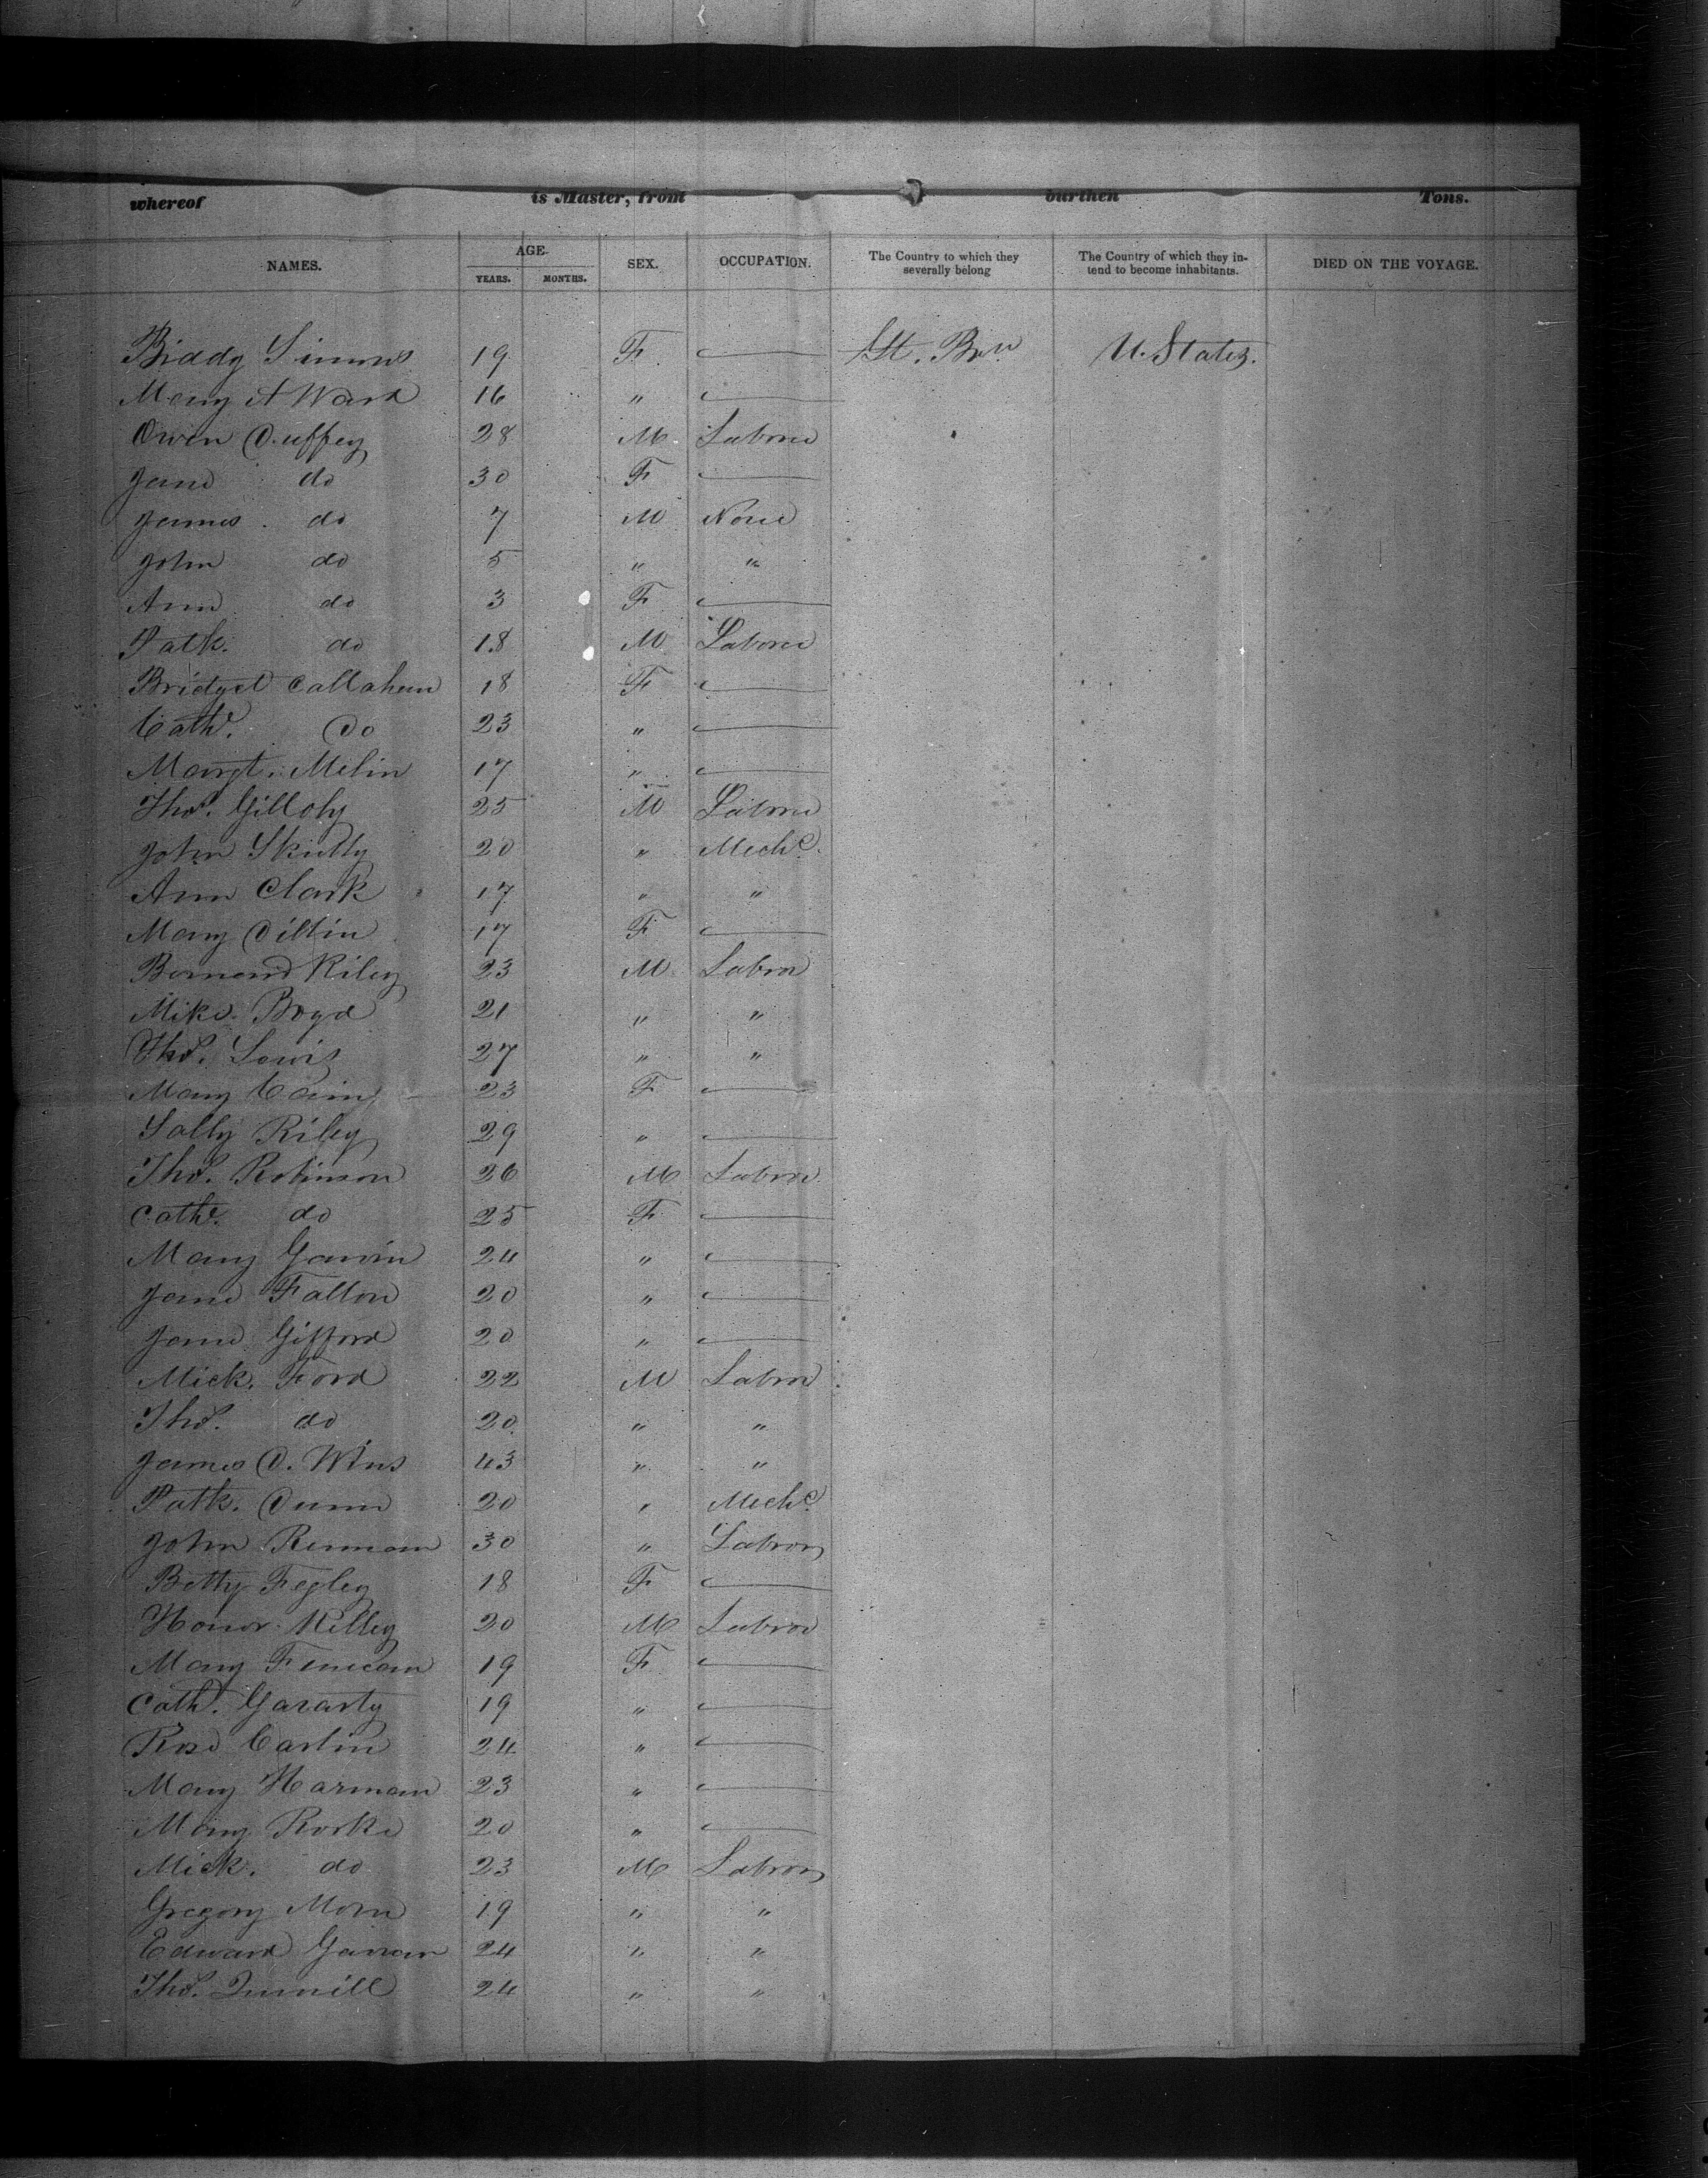 whereof is Master, from burthen Tons.
NAMES. AGE. SEX. OCCUPATION. The Country to which they severally belong The Country of which they intend to become inhabitants. DIED ON THE VOYAGE.
YEARS. MONTHS.
Biddy Simons 19 F — Gt. Brn U. States.
Mary A Ward 16 " —
Owen Duffey 28 M Laborer
Jane do 30 F —
James do 7 M None
John do 5 " "
Ann do 3 F —
Patk. do 18 M Laborer
Bridget Callahan 18 F —
Cathe. Do 23 " —
Margt. Melin 17 " —
Thos. Gilloly 25 M Laborer
John Skully 20 " Mechc.
Ann Clark 17 " "
Mary Dillin 17 F —
Bernard Riley 23 M Labor
Mike Boyd 21 " "
Thos. Lewis 27 " "
Mary Cain 23 F —
Sally Riley 29 " —
Thos. Robinson 26 M Labor
Cathe. do 25 F —
Mary Gavin 24 " —
Jane Fallon 20 " —
Jane Gifford 20 " —
Mick. Ford 22 M Labor
Thos. do 20 " "
James D. Wins 43 " "
Patk. Dunn 20 " Mechc.
John Rennan 30 " Labor
Betty Fegley 18 F —
Honor Killey 20 M Labor
Mary Finican 19 F —
Cathe. Gararty 19 " —
Rose Carlin 24 " —
Mary Harman 23 " —
Mary Rorke 20 " —
Mick. do 23 M Labor
Gregory Morn 19 " "
Edward Garran 24 " "
Thos. Quinill 24 " "